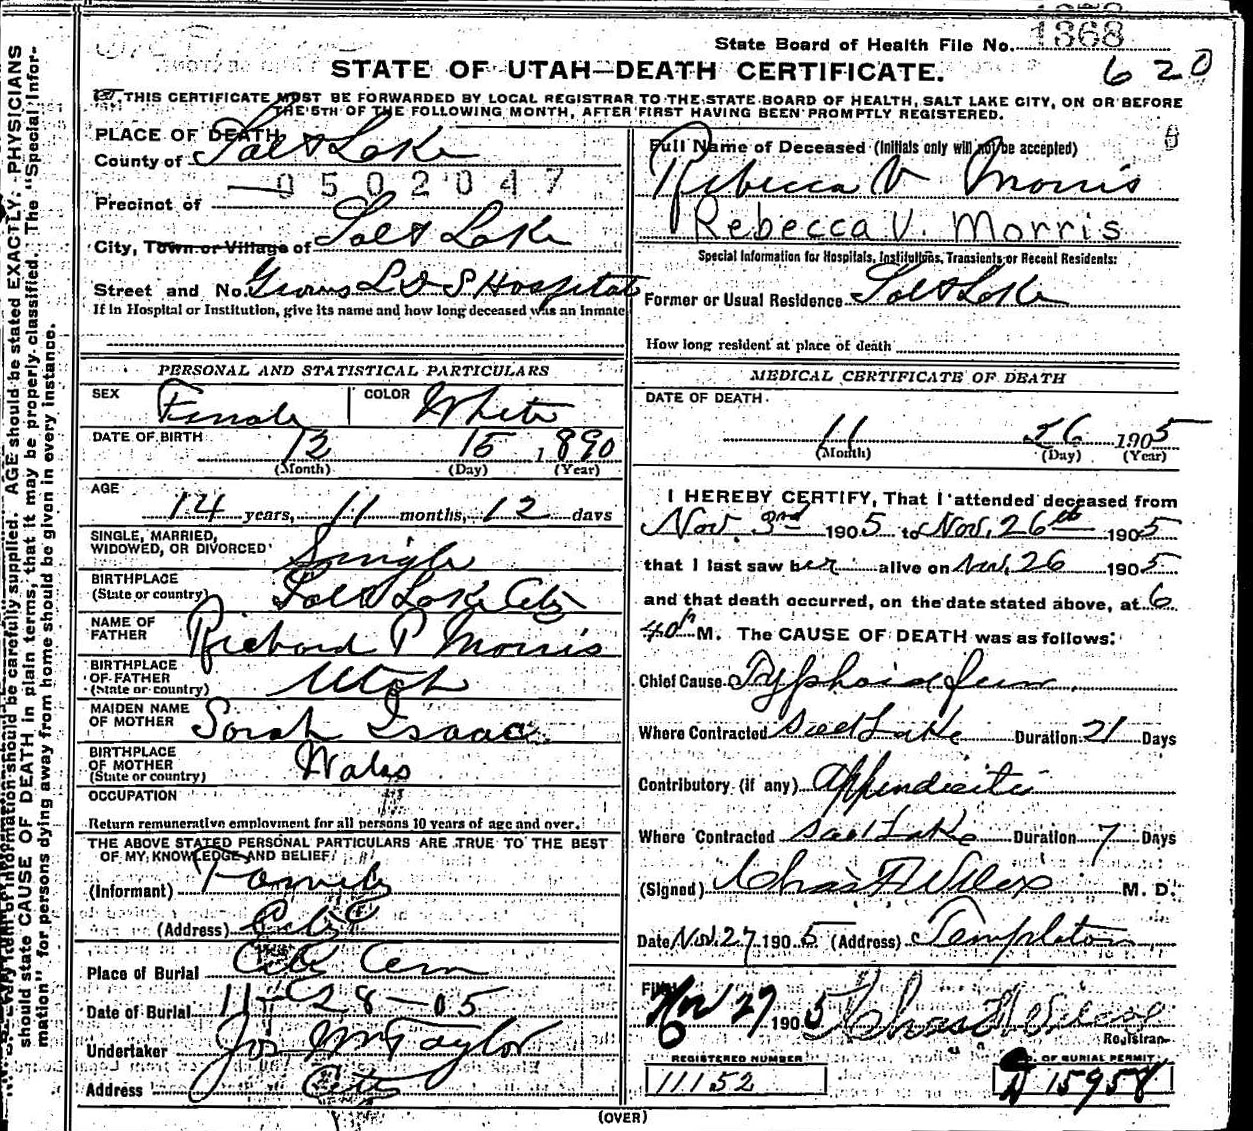 State Board of Health File No. 1368
STATE OF UTAH—DEATH CERTIFICATE.
620
THIS CERTIFICATE MUST BE FORWARDED BY LOCAL REGISTRAR TO THE STATE BOARD OF HEALTH, SALT LAKE CITY, ON OR BEFORE
THE 5TH OF THE FOLLOWING MONTH, AFTER FIRST HAVING BEEN PROMPTLY REGISTERED.
PLACE OF DEATH
County of Salt Lake
0502047
Precinct of
City, Town or Village of Salt Lake
Street and No. Groves L D S Hospital
If in Hospital or Institution, give its name and how long deceased was an inmate
PERSONAL AND STATISTICAL PARTICULARS
SEX Female COLOR White
DATE OF BIRTH 12 15 1890
(Month) (Day) (Year)
AGE
14 years, 11 months, 12 days
SINGLE, MARRIED,
WIDOWED, OR DIVORCED Single
BIRTHPLACE
(State or country) Salt Lake City
NAME OF
FATHER Richard P Morris
BIRTHPLACE
OF FATHER
(State or country) Utah
MAIDEN NAME
OF MOTHER Sarah Isaac
BIRTHPLACE
OF MOTHER
(State or country) Wales
OCCUPATION
Return remunerative employment for all persons 10 years of age and over.
THE ABOVE STATED PERSONAL PARTICULARS ARE TRUE TO THE BEST
OF MY KNOWLEDGE AND BELIEF
(Informant) Family
(Address) City
Place of Burial City Cem
Date of Burial 11-28-05
Undertaker Jos Wm Taylor
Address City
Full Name of Deceased (Initials only will not be accepted)
Rebecca V Morris
Rebecca V. Morris
Special Information for Hospitals, Institutions, Transients or Recent Residents:
Former or Usual Residence Salt Lake
How long resident at place of death
MEDICAL CERTIFICATE OF DEATH
DATE OF DEATH
11 26 1905
(Month) (Day) (Year)
I HEREBY CERTIFY, That I attended deceased from
Nov. 3rd 1905 to Nov. 26th 1905
that I last saw her alive on Nov. 26 1905
and that death occurred, on the date stated above, at 6
40 M. The CAUSE OF DEATH was as follows:
Chief Cause Typhoid fever
Where Contracted Salt Lake Duration 21 Days
Contributory (if any) Appendicitis
Where Contracted Salt Lake Duration 7 Days
(Signed) Chas F Wilcox M. D.
Date Nov. 27 1905 (Address) Templeton
Filed
Nov 27 1905 Chas F Wilcox
Registrar
REGISTERED NUMBER
11152
NO. OF BURIAL PERMIT
A 15958
(OVER)
AGE should be stated EXACTLY. PHYSICIANS
should state CAUSE OF DEATH in plain terms, that it may be properly classified. The "Special Infor-
mation" for persons dying away from home should be given in every instance.